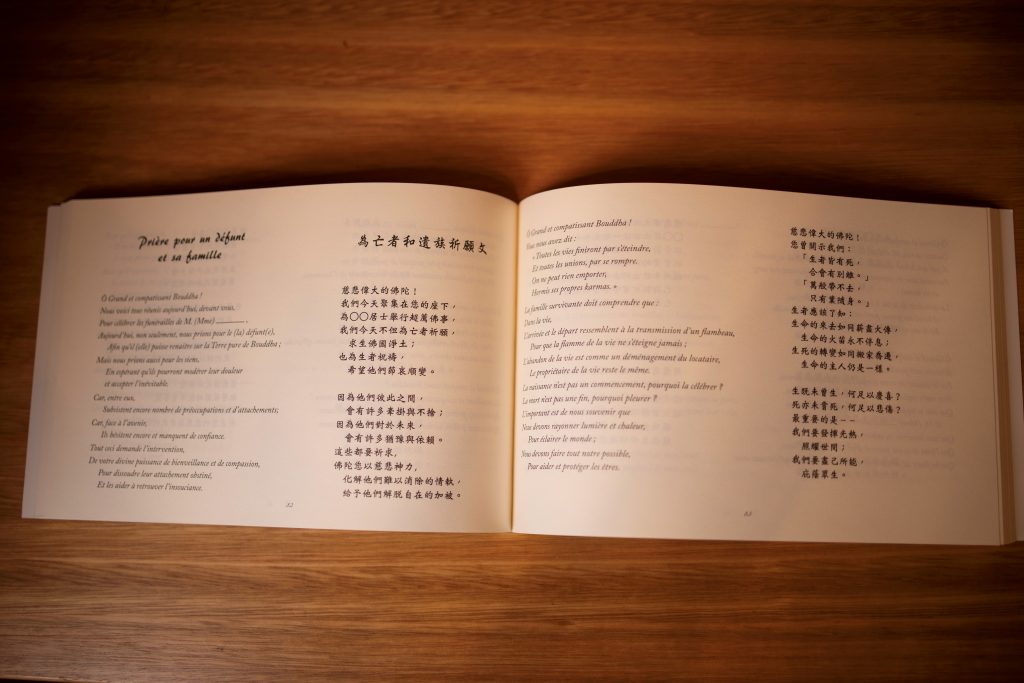 Prière pour un défunt
et sa famille
Ô Grand et compatissant Bouddha !
Nous voici tous réunis aujourd'hui, devant vous,
Pour célébrer les funérailles de M. (Mme) ________ .
Aujourd'hui, non seulement, nous prions pour le (la) défunt(e),
Afin qu'il (elle) puisse renaître sur la Terre pure de Bouddha ;
Mais nous prions aussi pour les siens,
En espérant qu'ils pourront modérer leur douleur
et accepter l'inévitable.
Car, entre eux,
Subsistent encore nombre de préoccupations et d'attachements;
Car, face à l'avenir,
Ils hésitent encore et manquent de confiance.
Tout ceci demande l'intervention,
De votre divine puissance de bienveillance et de compassion,
Pour dissoudre leur attachement obstiné,
Et les aider à retrouver l'insouciance.
為亡者和遺族祈願文
慈悲偉大的佛陀!
我們今天聚集在您的座下,
為○○居士舉行超薦佛事,
我們今天不但為亡者祈願,
求生佛國淨土;
也為生者祝禱,
希望他們節哀順變。
因為他們彼此之間,
會有許多牽掛與不捨;
因為他們對於未來,
會有許多猶豫與依賴。
這些都要祈求,
佛陀您以慈悲神力,
化解他們難以消除的情執,
給予他們解脫自在的加被。
82
Ô Grand et compatissant Bouddha !
Vous nous avez dit :
« Toutes les vies finiront par s'éteindre,
Et toutes les unions, par se rompre.
On ne peut rien emporter,
Hormis ses propres karmas. »
La famille survivante doit comprendre que :
Dans la vie,
L'arrivée et le départ ressemblent à la transmission d'un flambeau,
Pour que la flamme de la vie ne s'éteigne jamais ;
L'abandon de la vie est comme un déménagement du locataire,
Le propriétaire de la vie reste le même.
La naissance n'est pas un commencement, pourquoi la célébrer ?
La mort n'est pas une fin, pourquoi pleurer ?
L'important est de nous souvenir que
Nous devons rayonner lumière et chaleur,
Pour éclairer le monde ;
Nous devons faire tout notre possible,
Pour aider et protéger les êtres.
慈悲偉大的佛陀!
您曾開示我們:
「生者皆有死,
合會有別離。」
「萬般帶不去,
只有業隨身。」
生者應該了知:
生命的來去如同薪盡火傳,
生命的火苗永不停息;
生死的轉變如同搬家喬遷,
生命的主人仍是一樣。
生既未曾生,何足以慶喜?
死亦未嘗死,何足以悲傷?
最重要的是--
我們要發揮光熱,
照耀世間;
我們要盡己所能,
庇蔭眾生。
83